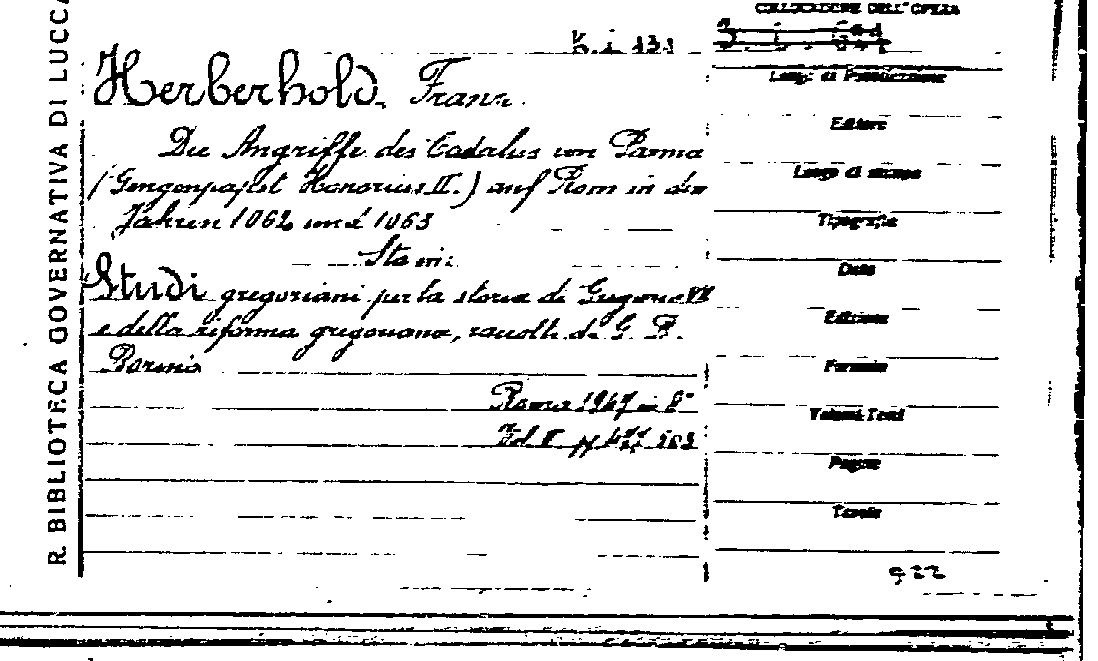 R. BIBLIOTECA GOVERNATIVA DI LUCCA
COLLOCAZIONE DELL'OPERA
K. i 131
Herberhold, Franz.
Die Angriffe des Cadalus von Parma
(Gengenpapst Honorius II.) auf Rom in den
Jahren 1062 und 1063
Sta in:
Studi gregoriani per la storia di Gregorio VII
e della riforma gregoriana, raccolti da G. B.
Borino
Roma 1947 in 8°
Vol pp 477 503
Luogo di Pubblicazione
Editore
Luogo di stampa
Tipografia
Data
Edizione
Formato
Volumi-Tomi
Pagine
Tavole
922